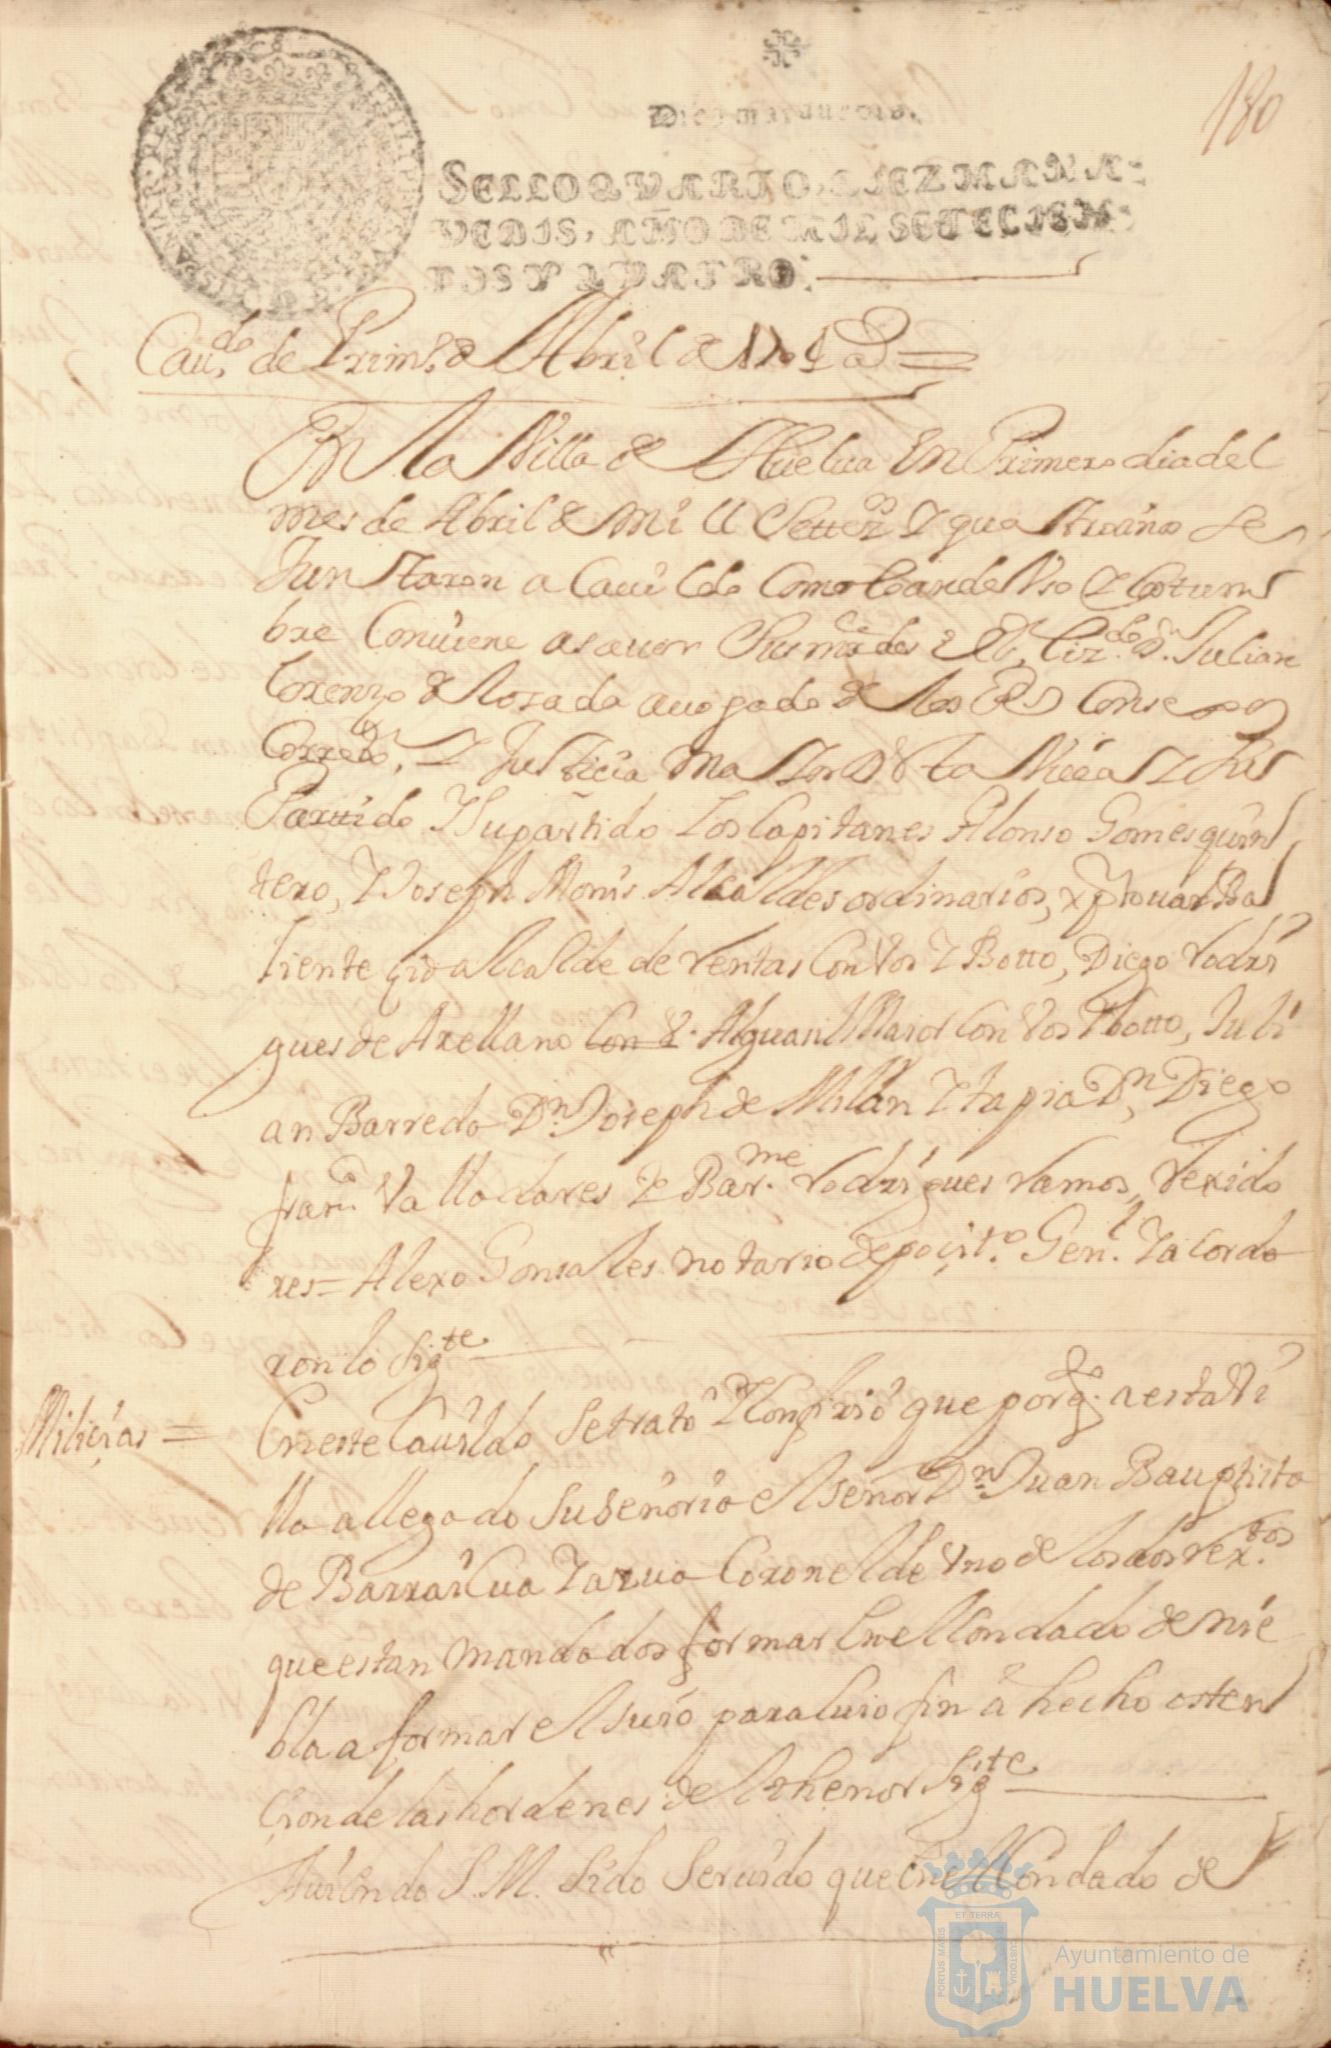 180
Diez marauedis.
SELLO QVARTO, DIEZ MARA-
VEDIS, AÑO DE MIL SETECIEN-
TOS Y QVATRO.
Cauᵈᵒ de Primº de Abril de 1704 aˢ =
En la Villa de Huelua En Primero dia del
mes de Abril de mill Setteᶻᵒˢ Y quatro años se
Juntaron a Cauildo Como lo an de Vso Y Costum
bre Conuiene asauer Sus mrᶜᵉᵈᵉˢ el Lizᵈᵒ Dⁿ Julian
Lorenzo de Rosada auogado de los Rˢ Consejos
Corrᵒʳ, Y Justicia Maior de sta Villa Y Su
Partido Y Su partido Los Capitanes Alonso Gomes quin
tero, Y Joseph Monis Alcaldes ordinarios, xptoual Ba
liente alcalde de Rentas Con Vos Y Botto, Diego Rodri
gues de Arellano Con V. Alguasil Maior Con Vos Y botto, Juli
an Barredo Dⁿ Joseph de Milan Y tapia Dⁿ, Diego
franᶜᵒ Valladares Y Barᵐᵉ Rodrigues Ramos, Rexido
res = Alexo Gonsales notario depoçitᵒ Genˡ Y acorda
ron lo Sigᵗᵉ
Miliçias =
En este Cauildo Se trato Y Confirio que por qᵗᵒ a esta Vi
lla a llegado Su Señoria el Señor Dⁿ Juan Bauptista
de BarrasCua Y azua Coronel de Vno de los dos rexᵗᵒˢ
que estan mandados formar En el Condado de nie
bla a formar el suio para Cuio fin a hecho osten
çion de las hordenes del thenor Sigᵗᵉ
Auiendo S. M. Sido Seruido que En el Condado de
ET TERRÆ
PORTUS MARIS
CUSTODIA
Ayuntamiento de
HUELVA